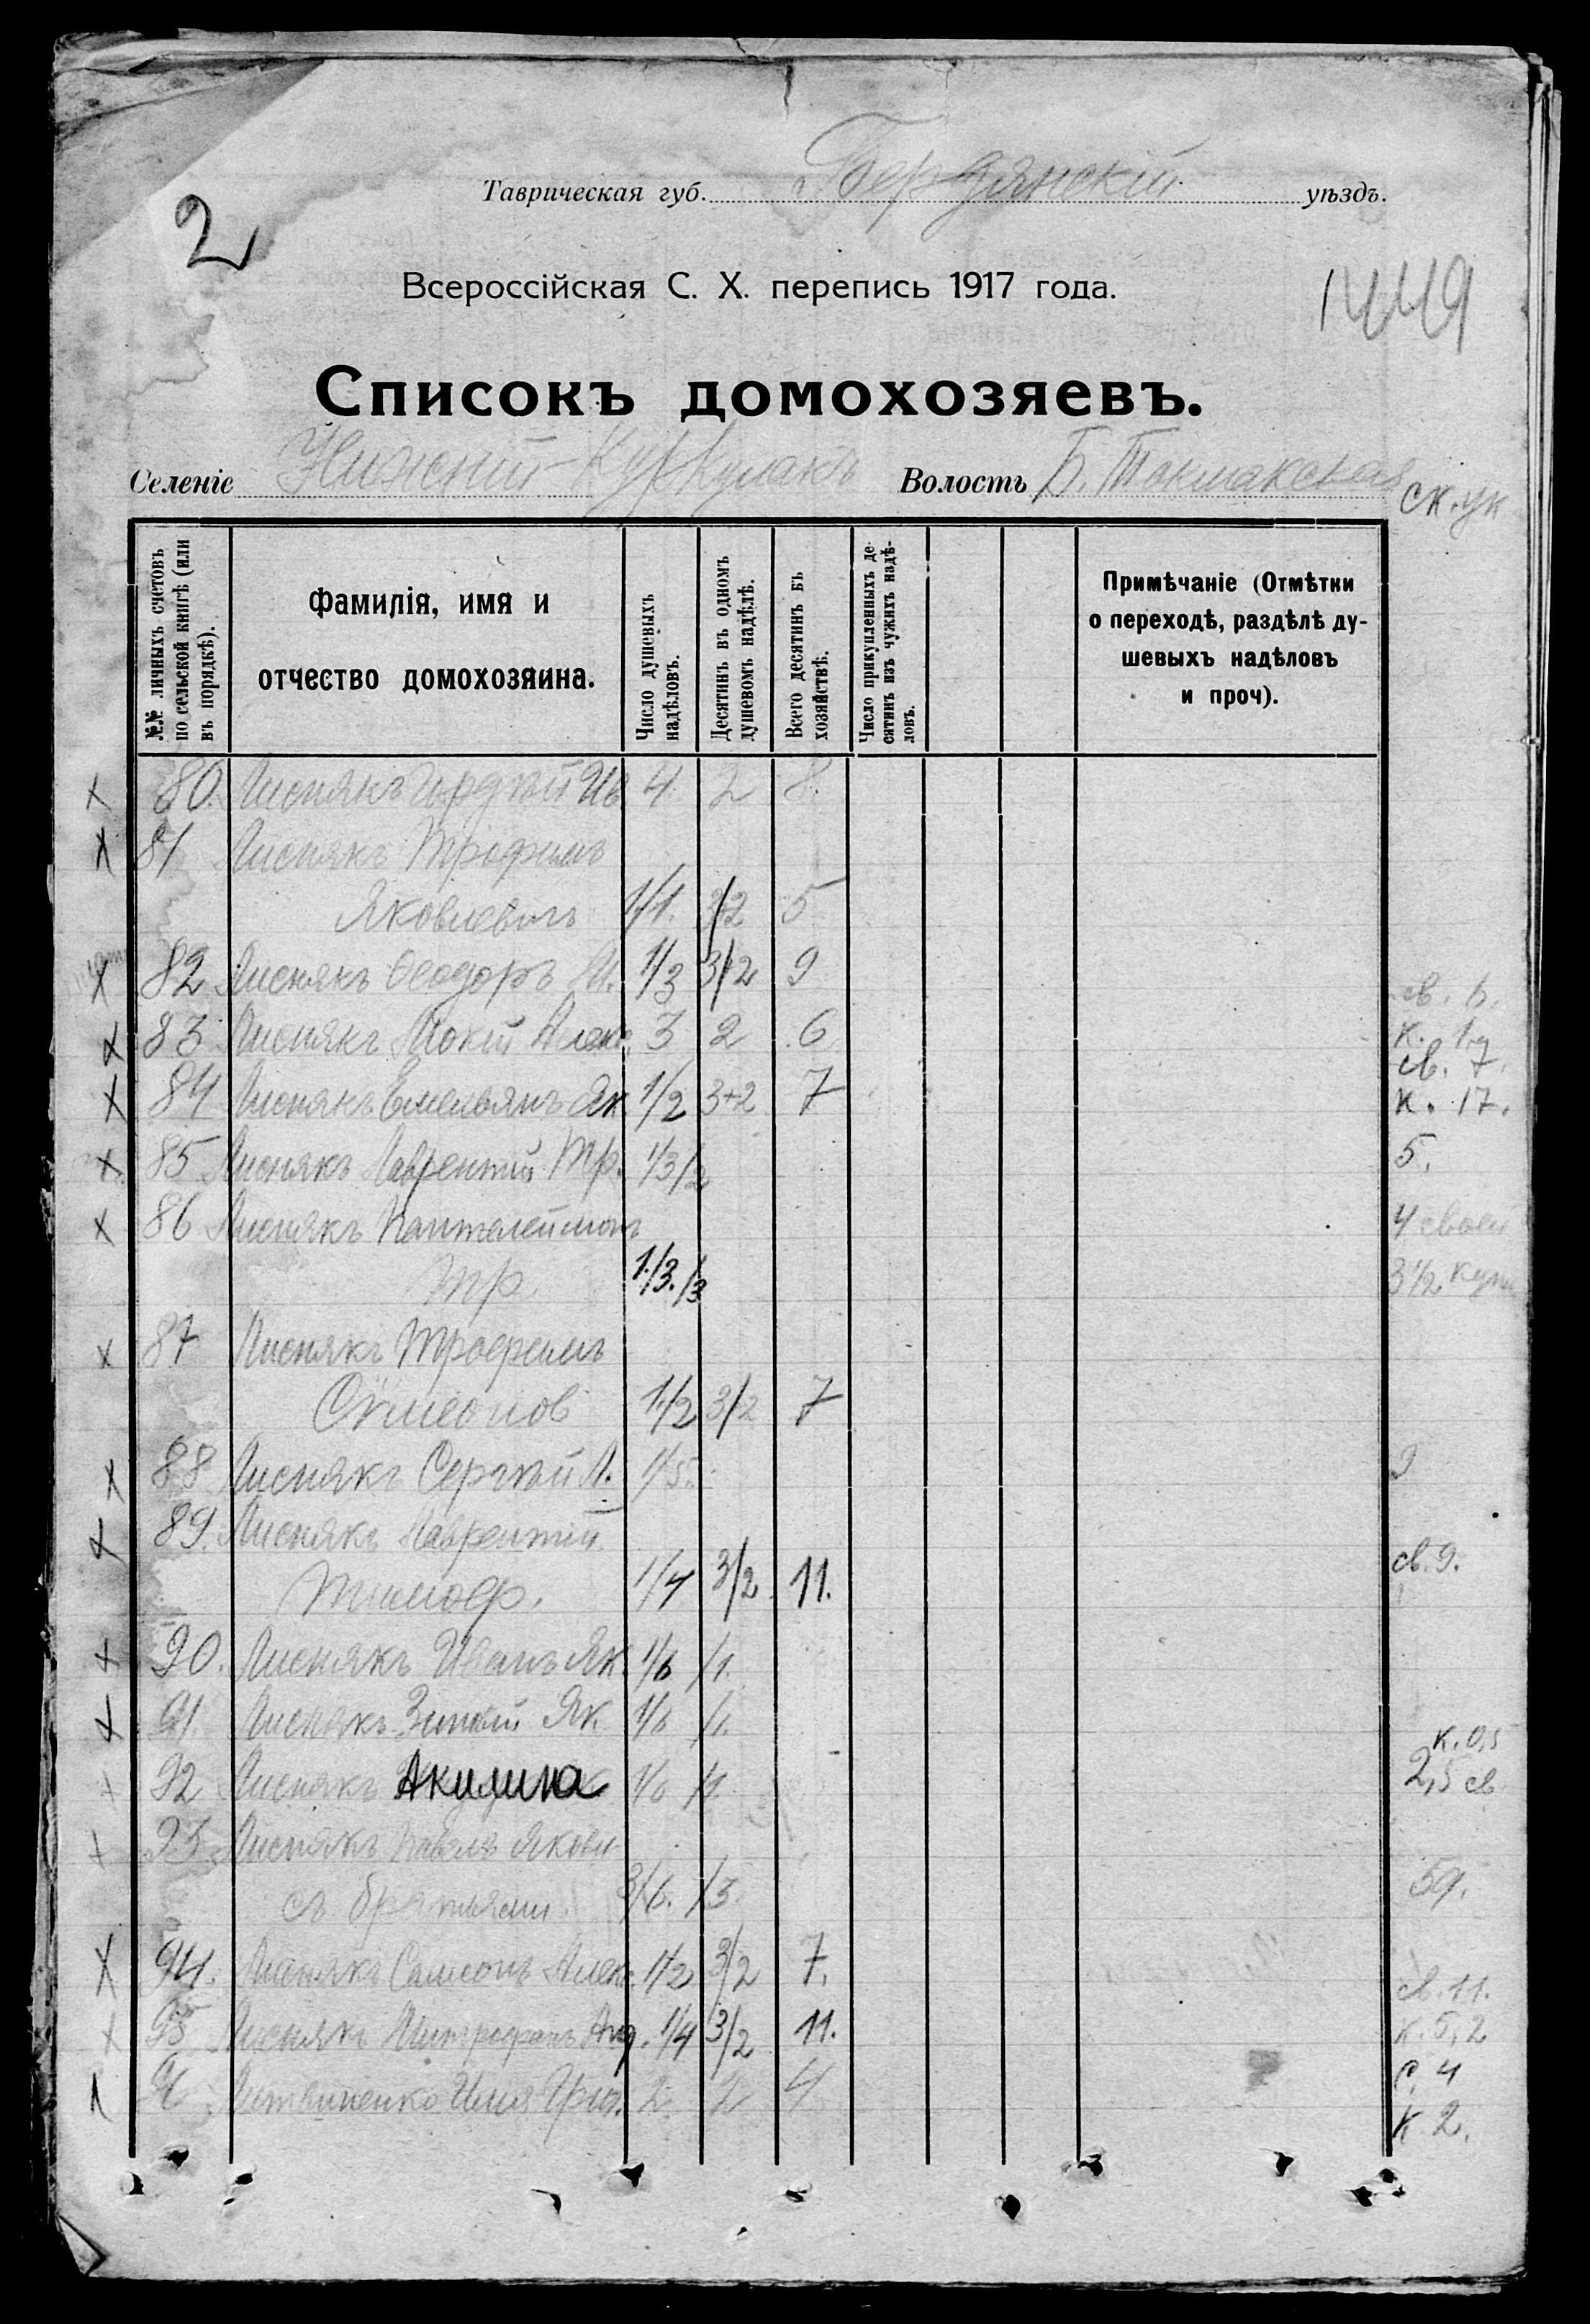 Таврическая губ. Бердянскій уѣздъ.
2
Всероссійская С. Х. перепись 1917 года.
1449
Списокъ домохозяевъ.
Селеніе Нижній Куркулакъ Волость Б. Токмакская
ск. ук
№№ личныхъ счетовъ по сельской книгѣ (или въ порядкѣ).
Фамилія, имя и отчество домохозяина.
Число душевыхъ надѣловъ.
Десятинъ въ одномъ душевомъ надѣлѣ.
Всего десятинъ въ хозяйствѣ.
Число прикупленныхъ десятинъ изъ чужихъ надѣловъ.
Примѣчаніе (Отмѣтки о переходѣ, раздѣлѣ душевыхъ надѣловъ и проч).
80. Лиснякъ Ив. 4. 2 8.
81 Лиснякъ Трофимъ
Яковлевичъ 1/1. 3/2 5
82 Лиснякъ Ѳеодоръ 1/3 3/2 9
св. 6.
83 Лиснякъ Мокій Алекс. 3 2 6
к.
св. 7.
84 Лиснякъ Емельянъ Як 1/2 3+2 7 к. 17.
85 Лиснякъ Лаврентій Тр. 1/3/2 5.
86 Лиснякъ Пантелеймонъ 4 своей
Тр. 1/3./3 3 1/2 купл
87 Лиснякъ Трофимъ
Симеонов 1/2 3/2 7
88 Лиснякъ Сергѣй Л. 1/5. 9
89. Лиснякъ Лаврентій
Тимоф. 1/4 3/2 11. св. 9.
90. Лиснякъ Иванъ Як. 1/6 /1.
91. Лиснякъ Як. 1/6 /1.
к. 0,5
92 Лиснякъ Акилина 1/6 /1. 2,5 св
93 Лиснякъ Павелъ Яковл
съ братьями 3/6. /3. 59.
94. Лиснякъ Самсонъ Алекс. 1/2 3/2 7.
св. 11.
95 Лиснякъ Митрофанъ Анд. 1/4 3/2 11. к. 5,2
с. 4
96 Литвиненко Илья Григ. 2. 2 4
к 2.